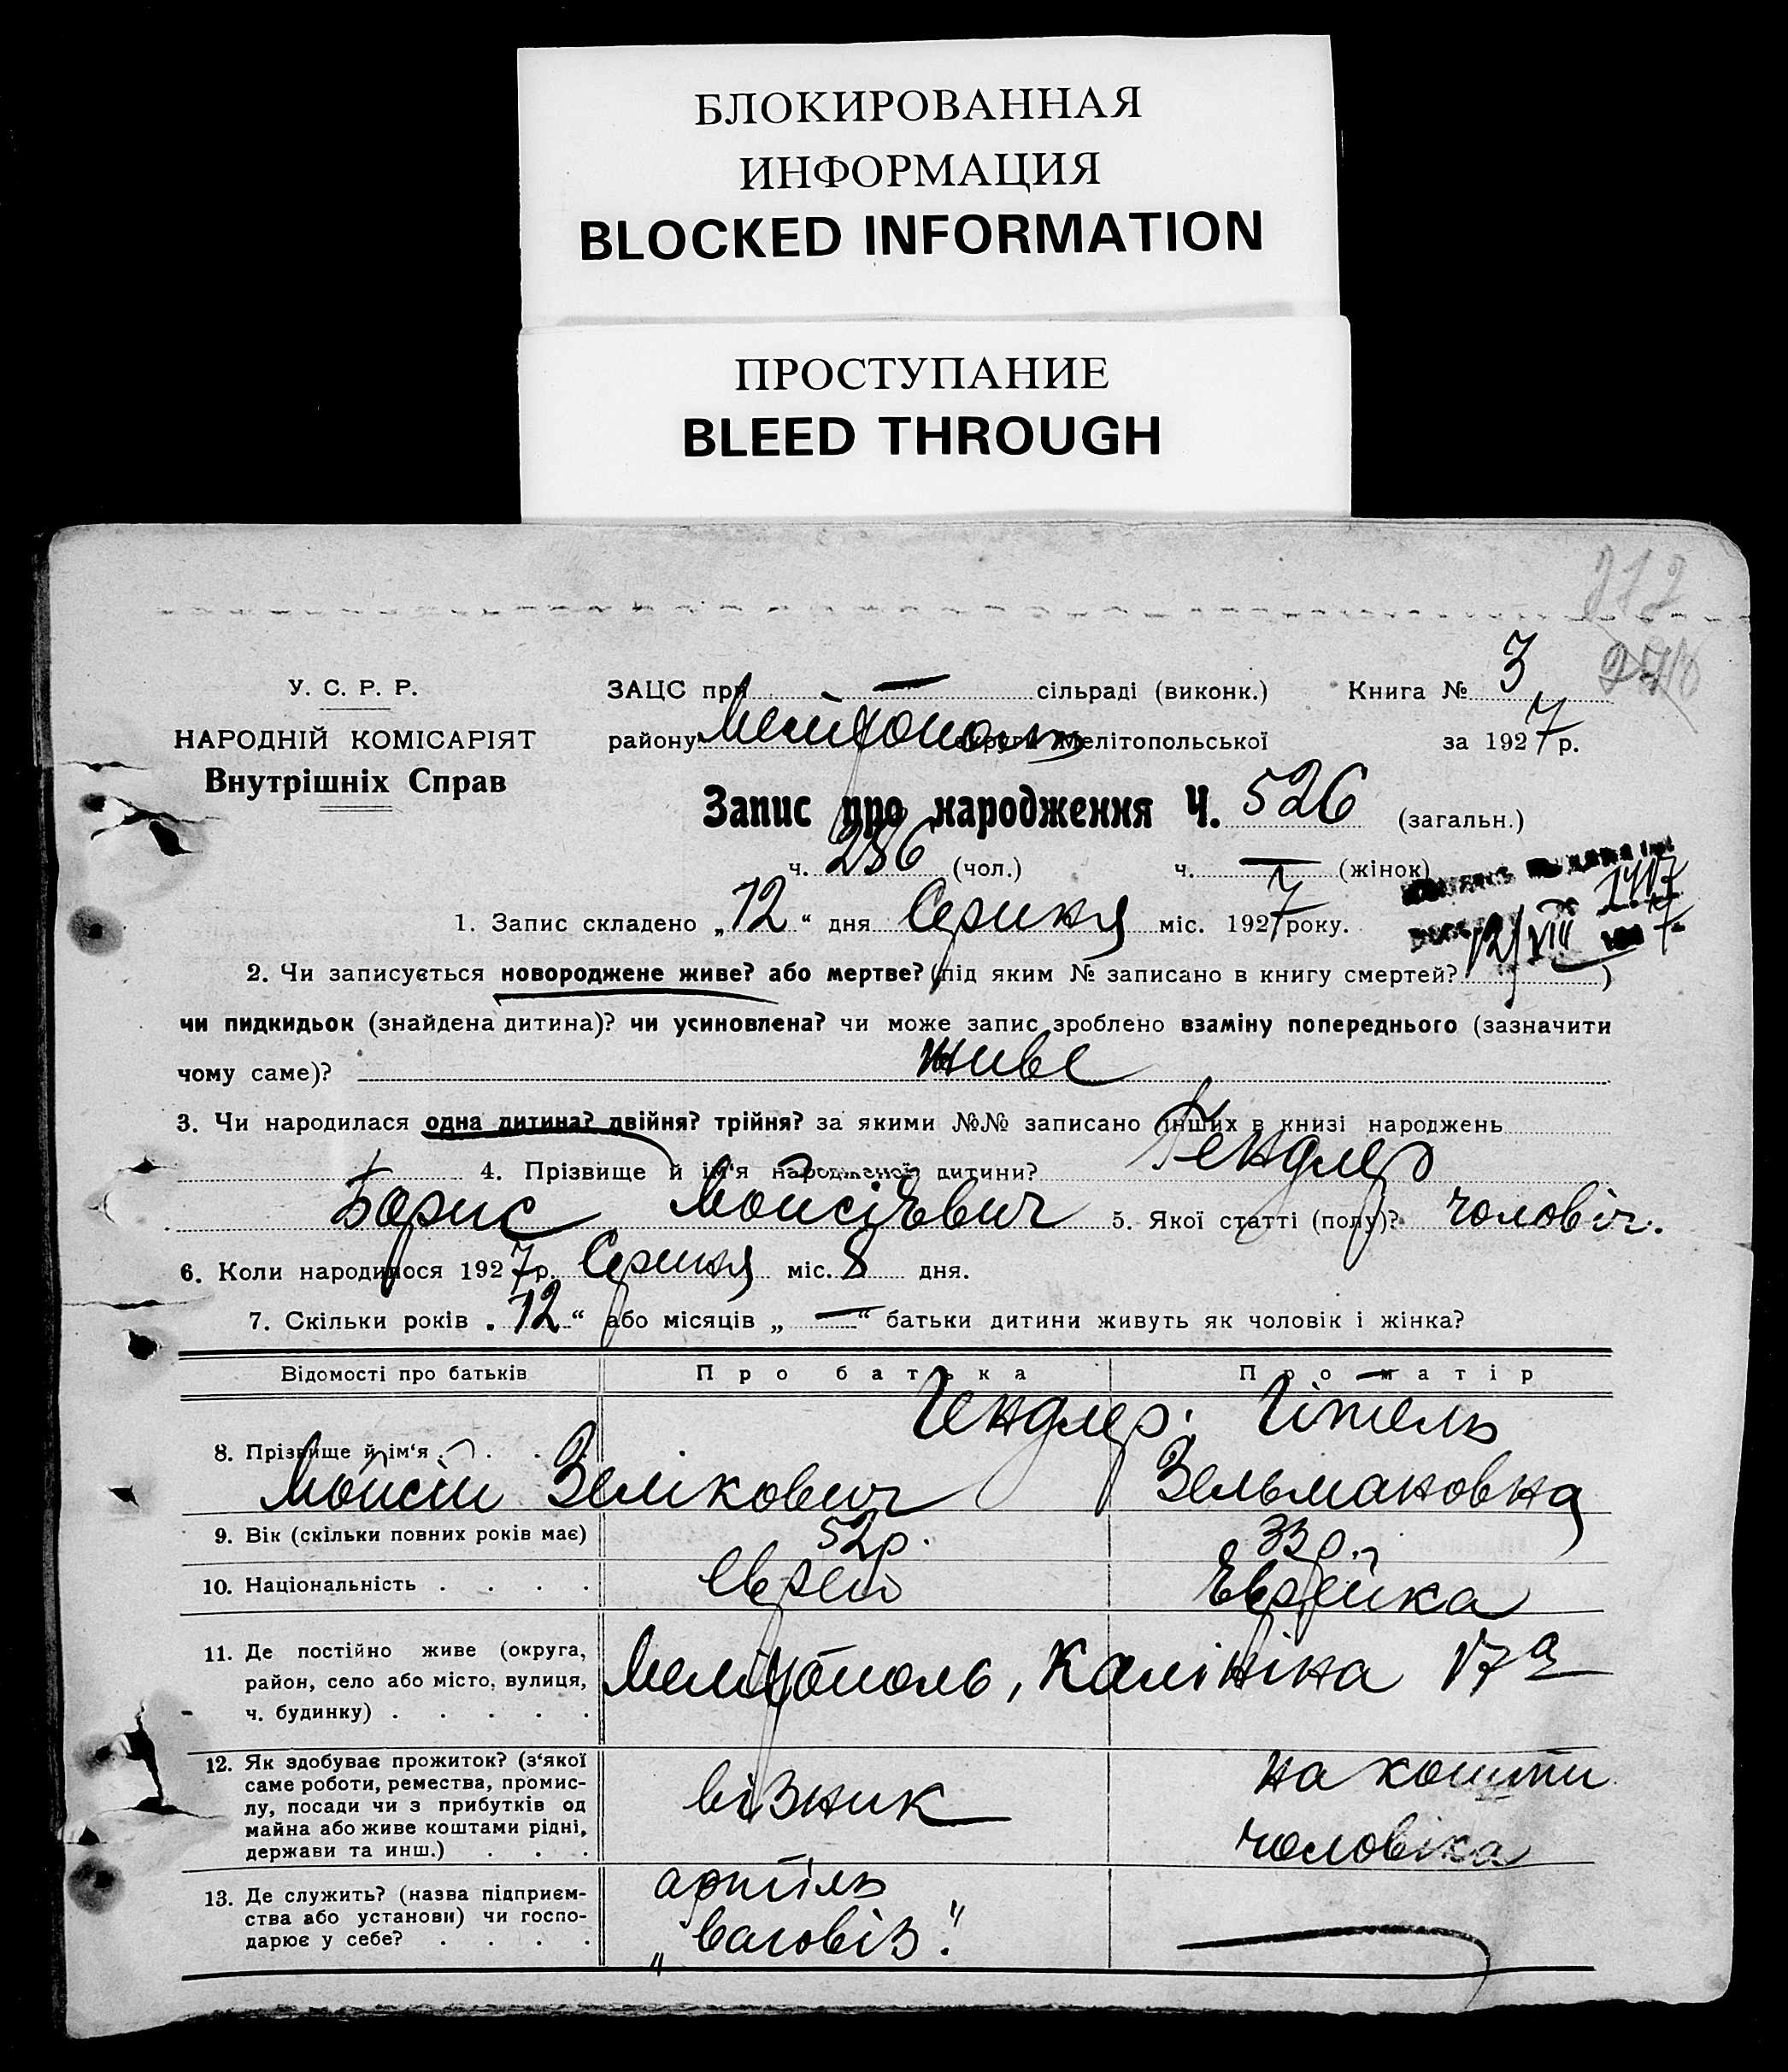 БЛОКИРОВАННАЯ
ИНФОРМАЦИЯ
BLOCKED INFORMATION
ПРОСТУПАНИЕ
BLEED THROUGH
У. С. Р. Р.
НАРОДНІЙ КОМІСАРІЯТ
Внутрішніх Справ
ЗАЦС при — сільраді (виконк.) Книга № 3
району Мелітополь округи Мелітопольської за 1927 р.
Запис про народження Ч. 526 (загальн.)
ч. 286 (чол.) ч. — (жінок)
1. Запис складено „12“ дня Серпня міс. 1927 року.
12/VIII 7
2. Чи записується новороджене живе? або мертве? (під яким № записано в книгу смертей? )
чи пидкидьок (знайдена дитина)? чи усиновлена? чи може запис зроблено взаміну попереднього (зазначити
чому саме)? живе
3. Чи народилася одна дитина? двійня? трійня? за якими №№ записано інших в книзі народжень
4. Прізвище й ім'я народженої дитини? Гендлер
Борис Мойсієвич 5. Якої статті (полу)? чоловіч.
6. Коли народилося 1927 р. Серпня міс. 8 дня.
7. Скільки років „12“ або місяців „—“ батьки дитини живуть як чоловік і жінка?
Відомості про батьків Про батька Про матір
8. Прізвище й ім'я . . . . Гендлер: Гітель
Мойсій Зелікович Зельмановна
9. Вік (скільки повних років має) 52 р. 33 р.
10. Національність . . . . єврей Єврейка
11. Де постійно живе (округа,
район, село або місто, вулиця,
ч. будинку) . . . . .
Мелітополь, Калініна 17а
12. Як здобуває прожиток? (з'якої
саме роботи, ремества, промис-
лу, посади чи з прибутків од
майна або живе коштами рідні,
держави та инш.) . . .
візник
на кошти
чоловіка
13. Де служить? (назва підприєм-
ства або установи) чи госпо-
дарює у себе? . . . .
артіль
„Ваговіз".
—